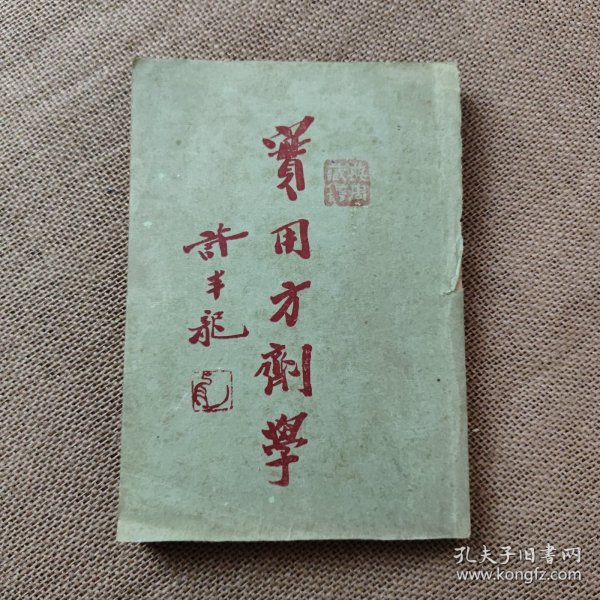 實用方劑學
許半龍
孔夫子旧书网
www.kongfz.com